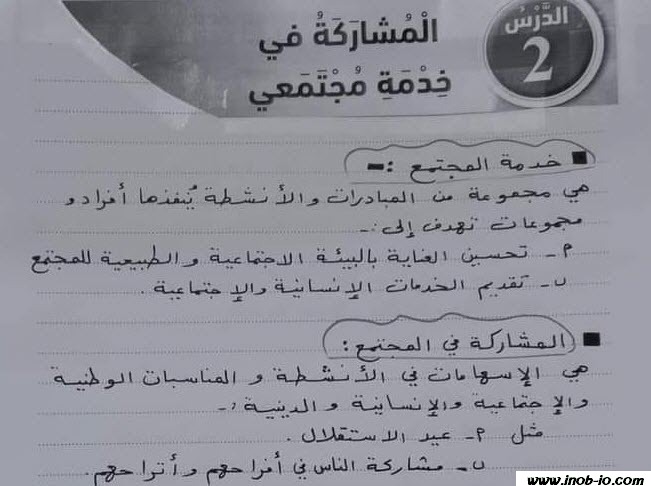 الدَّرْسُ
2
الْمُشارَكَةُ في
خِدْمَةِ مُجْتَمَعي
■ خدمة المجتمع :-
هي مجموعة من المبادرات والأنشطة يُنفذها أفراد و
مجموعات تهدف إلى :-
م- تحسين العناية بالبيئة الاجتماعية و الطبيعية للمجتمع
ن- تقديم الخدمات الإنسانية والإجتماعية .
■ المشاركة في المجتمع :
هي الإسهامات في الأنشطة و المناسبات الوطنية
والإجتماعية والإنسانية و الدينية :-
مثل م- عيد الاستقلال .
ن- مشاركة الناس في أفراحهم و أتراحهم.
www.inob-jo.com